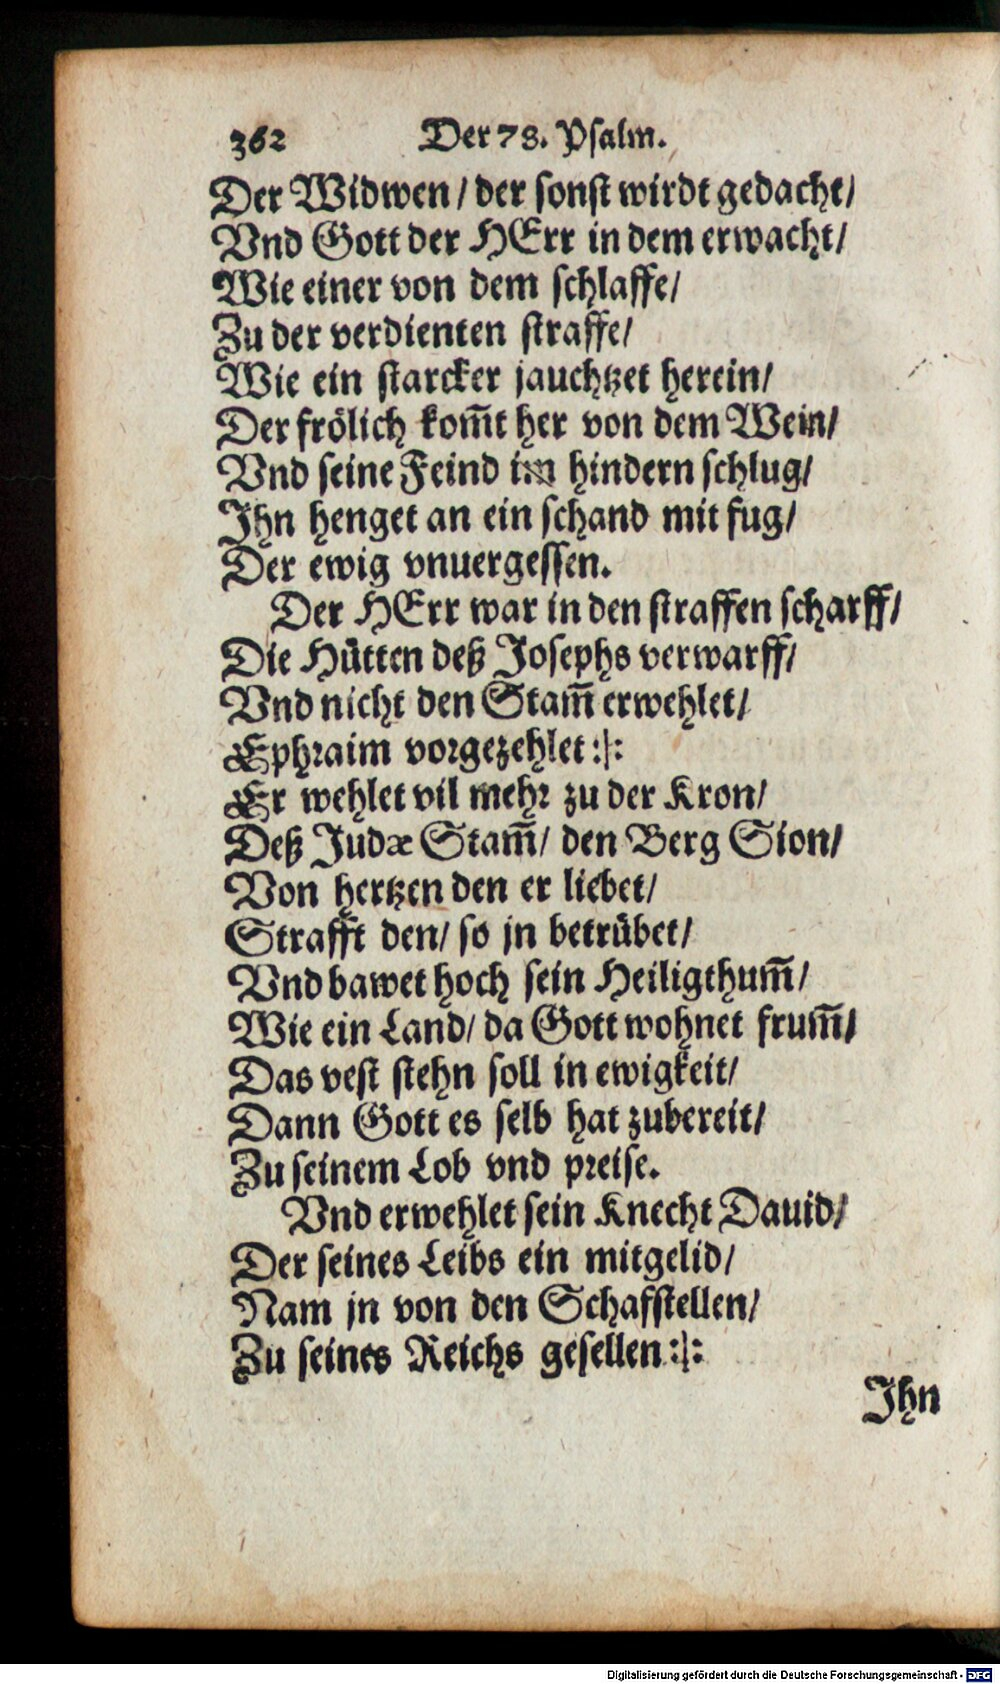 362 Der 78. Psalm.
Der Widwen / der sonst wirdt gedacht /
Vnd Gott der HErr in dem erwacht /
Wie einer von dem schlaffe /
Zu der verdienten straffe /
Wie ein starcker jauchtzet herein /
Der frölich kom̃t her von dem Wein /
Vnd seine Feind im hindern schlug /
Ihn henget an ein schand mit fug /
Der ewig vnuergessen.
Der HErr war in den straffen scharff /
Die Hütten deß Josephs verwarff /
Vnd nicht den Stam̃ erwehlet /
Ephraim vorgezehlet :|:
Er wehlet vil mehr zu der Kron /
Deß Judæ Stam̃ / den Berg Sion /
Von hertzen den er liebet /
Strafft den / so jn betrübet /
Vnd bawet hoch sein Heiligthum̃ /
Wie ein Land / da Gott wohnet frum̃ /
Das vest stehn soll in ewigkeit /
Dann Gott es selb hat zubereit /
Zu seinem Lob vnd preise.
Vnd erwehlet sein Knecht Dauid /
Der seines Leibs ein mitgelid /
Nam jn von den Schafstellen /
Zu seines Reichs gesellen :|:
Ihn
Digitalisierung gefördert durch die Deutsche Forschungsgemeinschaft - DFG